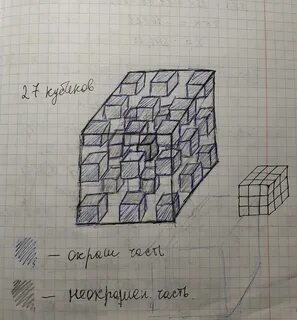 27 кубиков
— окраш часть
— неокрашен. часть.